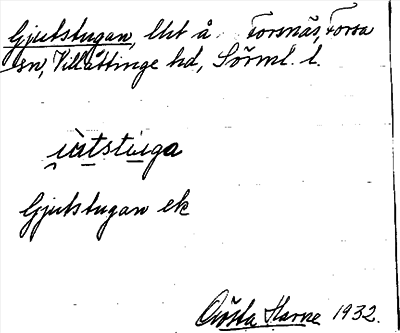 Gjutstugan, lht å Forsnäs, Forsa
sn, Villåttinge hd, Sörml. l.
i̯ùtstùga
Gjutstugan ek
Gösta Harne 1932.